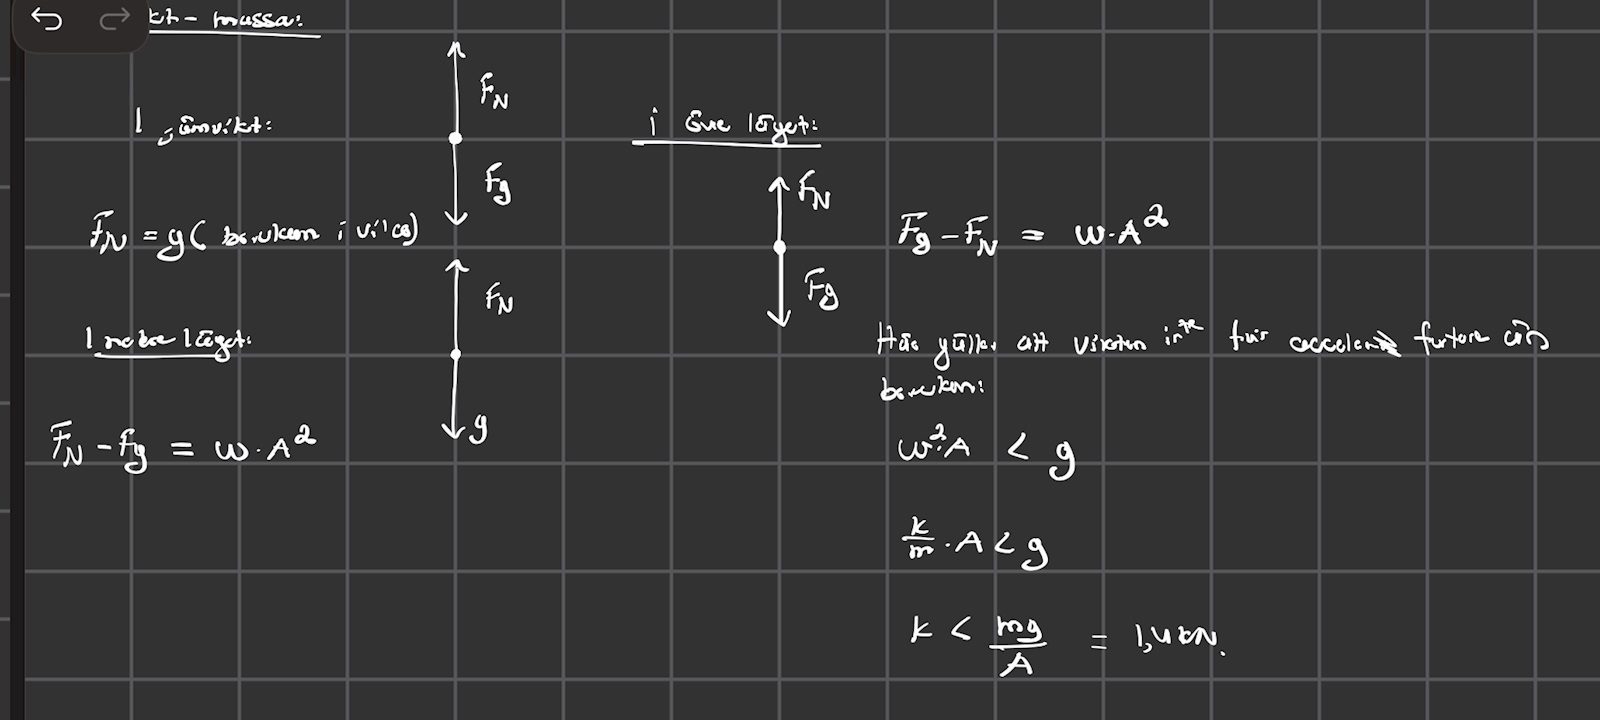 kt - massa:
I jämvikt:
F_N
F_g
F_N = g ( barukam i vila)
I nedre läget:
F_N
g
F_N - F_g = w · A^2
i övre läget:
F_N
F_g
F_g - F_N = w · A^2
Här gäller att vikten inte får accelerera fortare än
w^2 · A < g
k/m · A < g
k < mg/A = 1,4 kN.